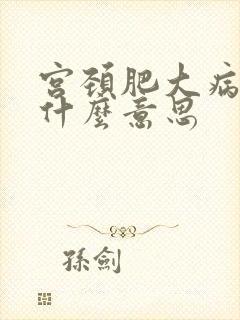 宮頚肥大病
什麼意思
孫劍